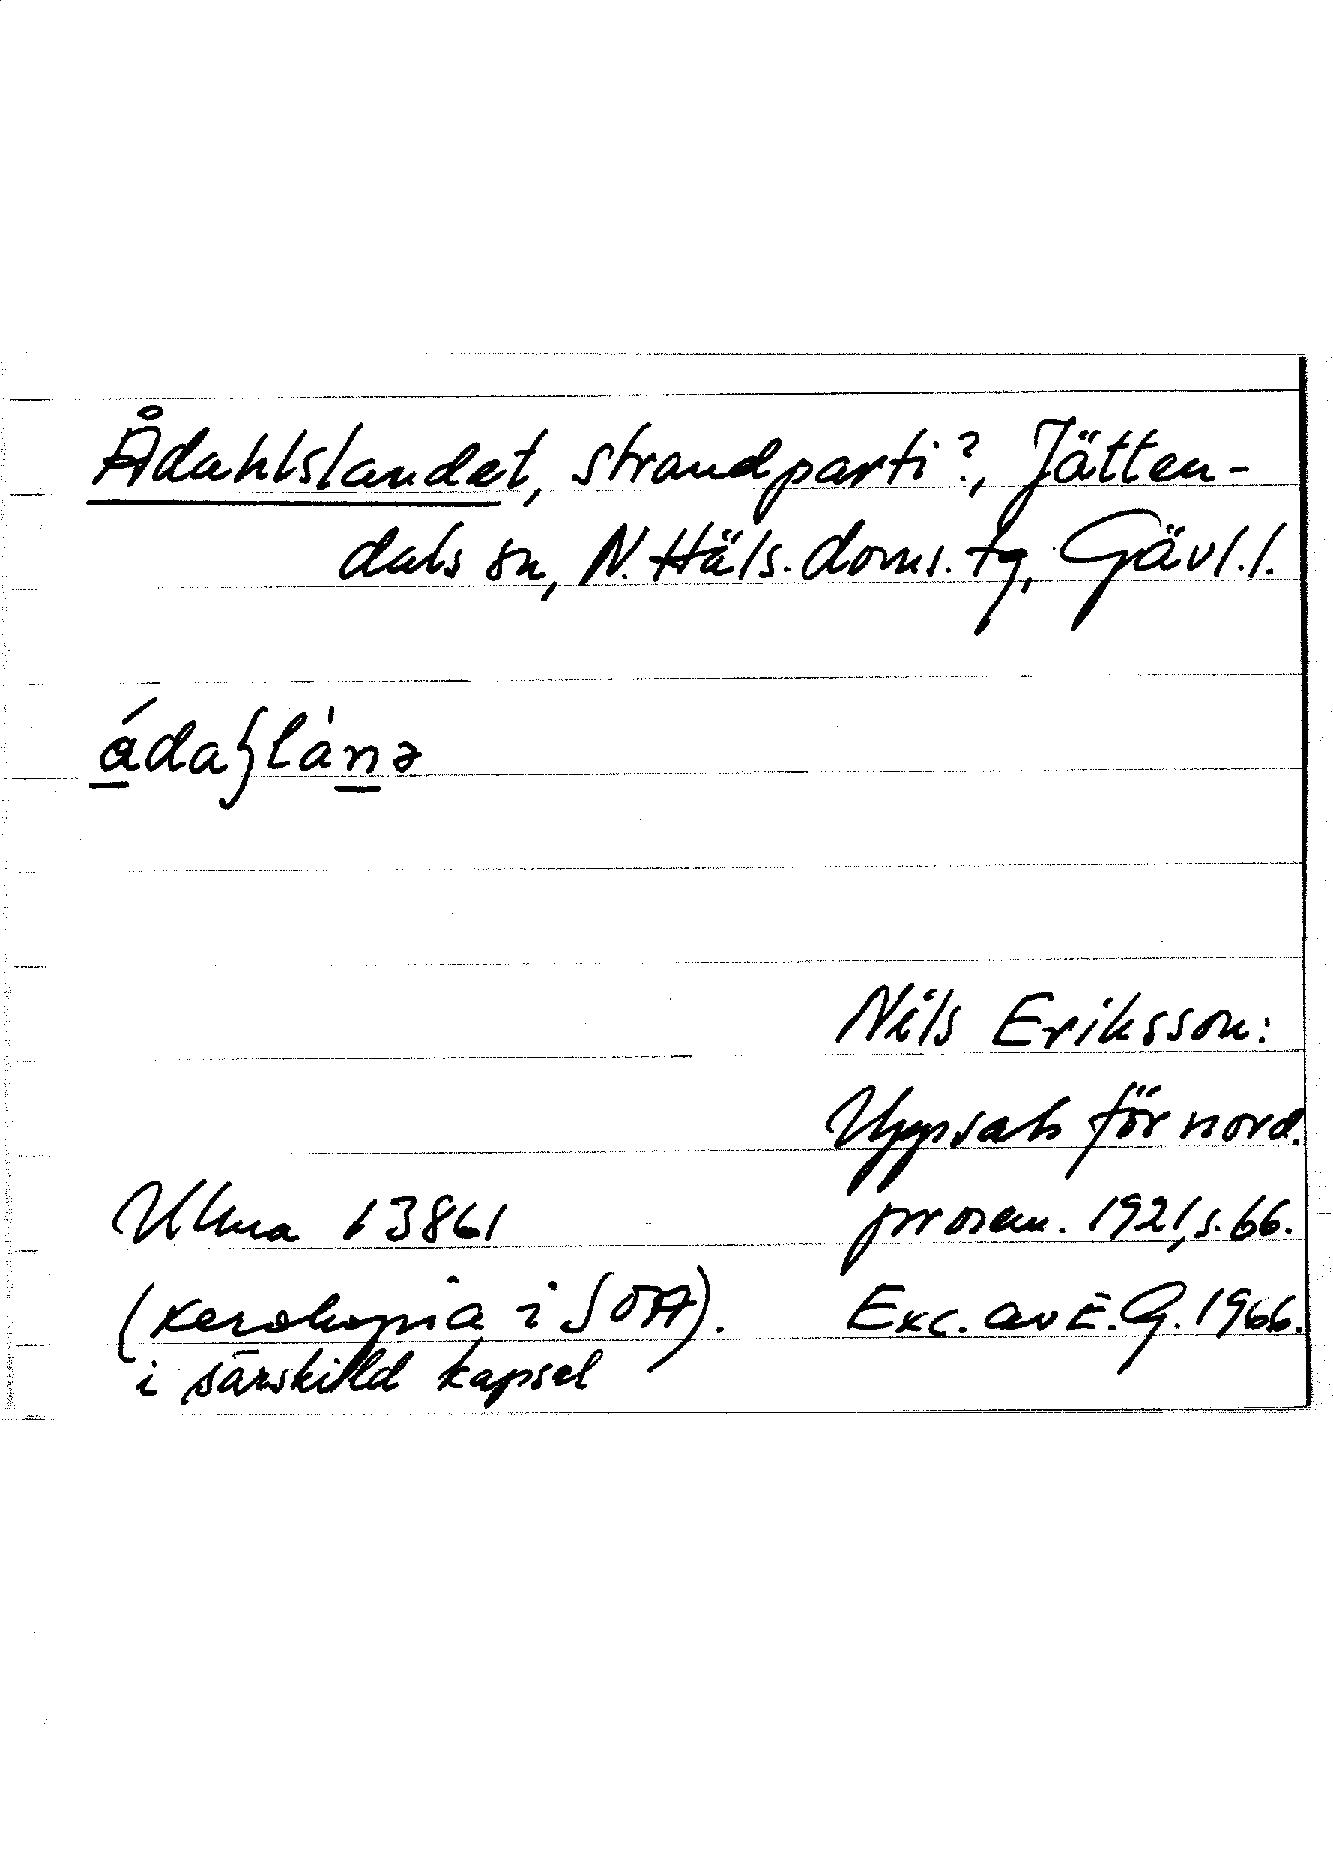 Ådahlslandet, strandparti?, Jätten-
dals sn, N. Häls. doms. tg, Gävl. l.
ádaʃlànə
Nils Eriksson:
Uppsats för nord.
prosem. 1921, s. 66.
Ulma 13861
(xerokopia i SOA).
Exc. av E. G. 1966.
i särskild kapsel